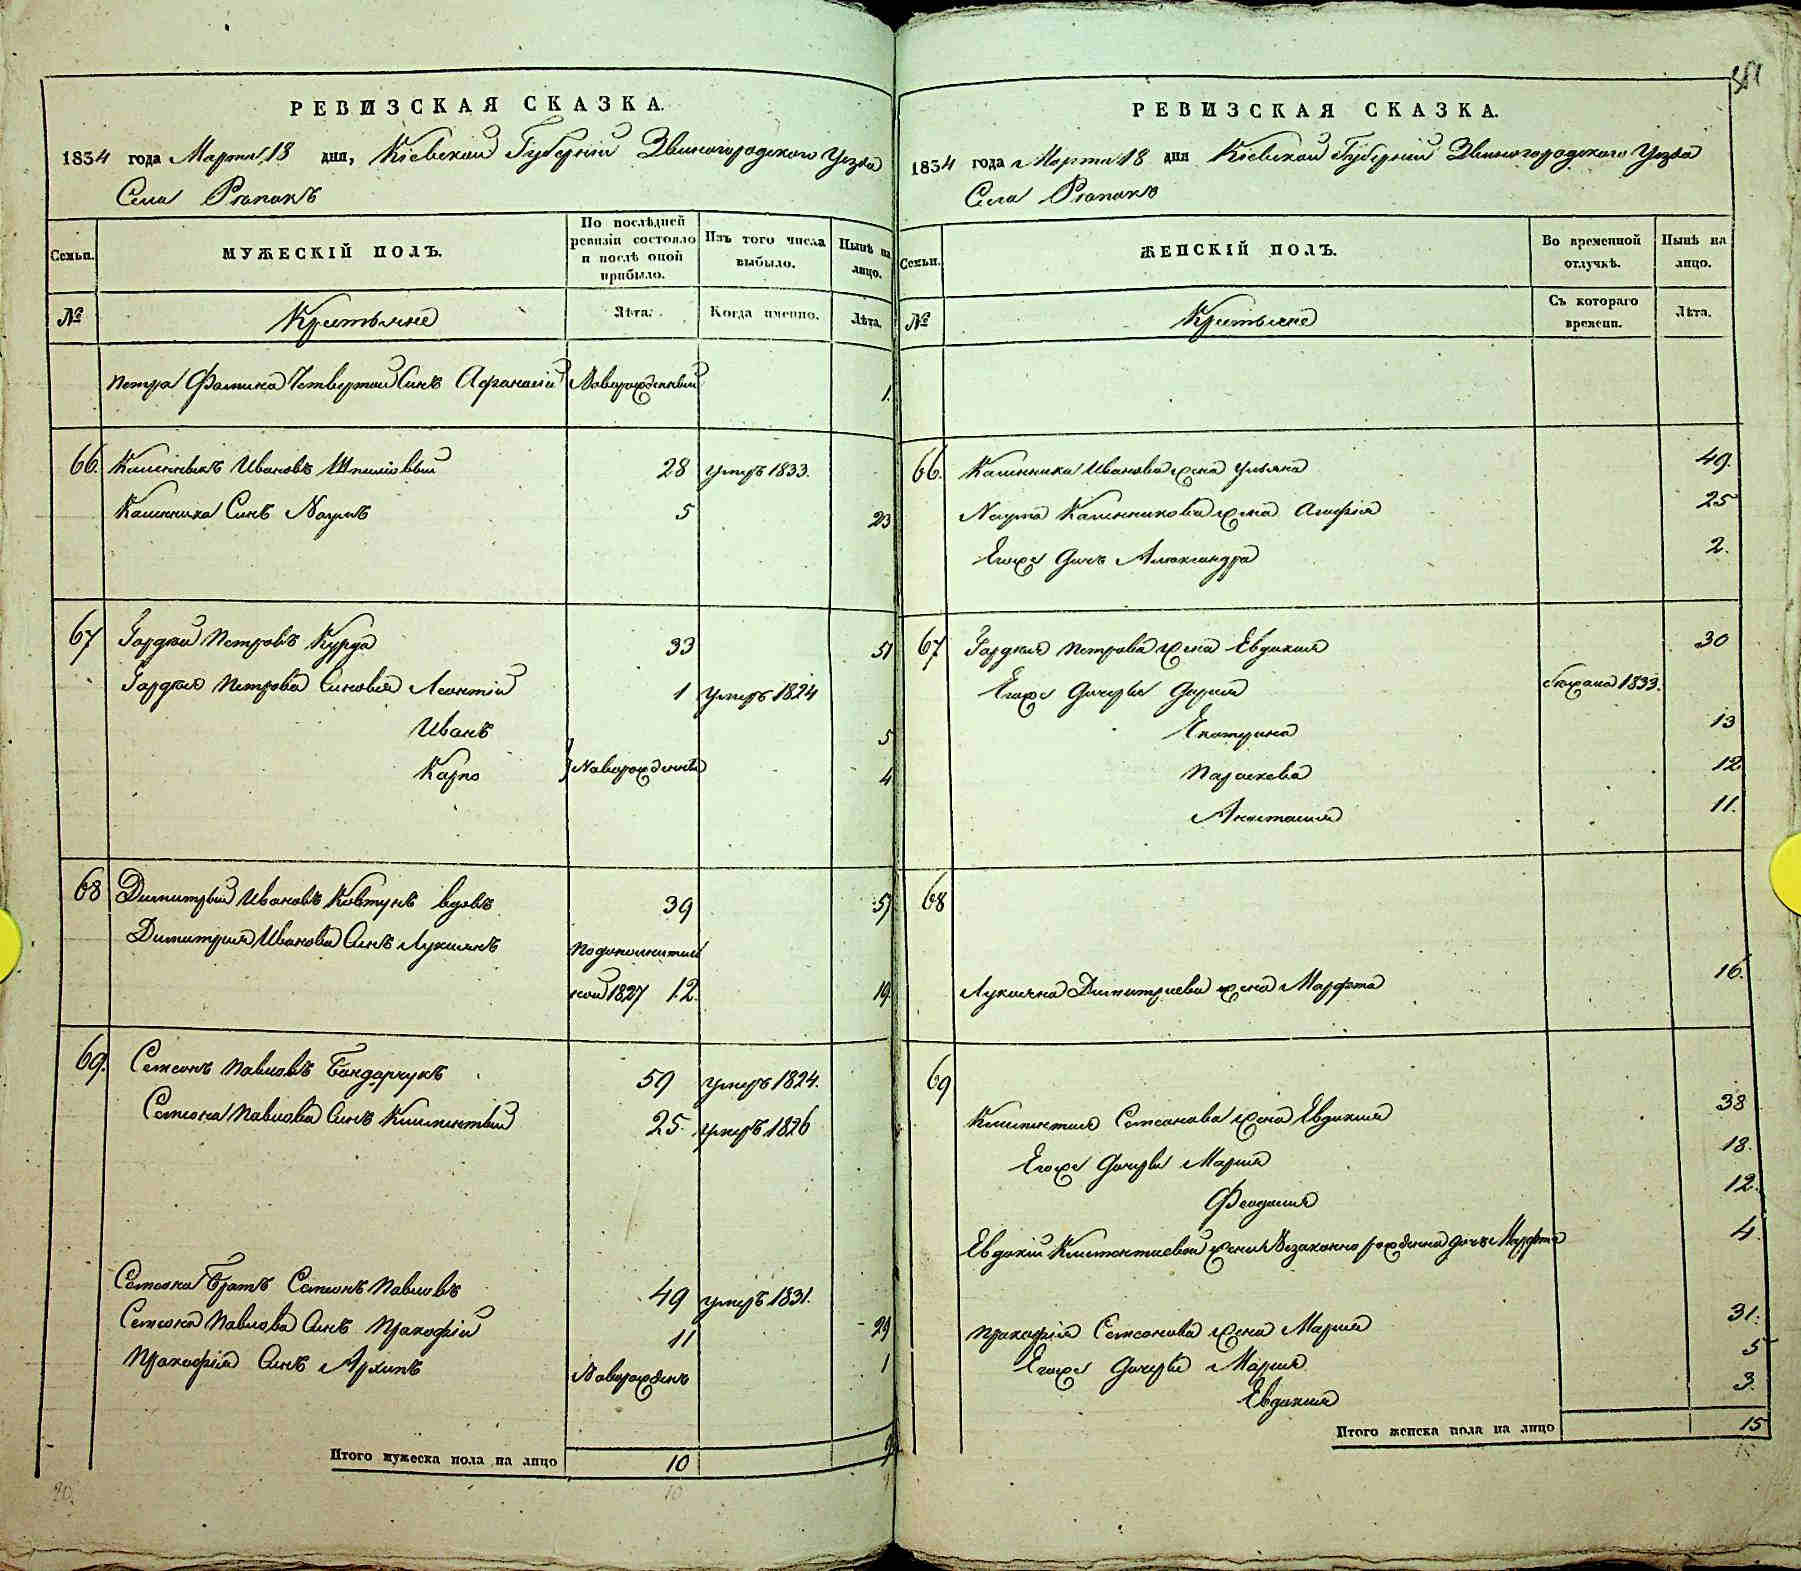 РЕВИЗСКАЯ СКАЗКА.
1834 года Марта 18 дня, Кіевской Губерніи Звиногородского Уезда
Села Рэпокъ
Семьи.
МУЖЕСКІЙ ПОЛЪ.
По послѣдней ревизіи состояло и послѣ оной прибыло.
Изъ того числа выбыло.
Нынѣ на лицо.
№
Крестьяне
Лѣта.
Когда именно.
Лѣта.
Петра Фомина Четвертой Синъ Афанасій Новорожденный 1.
66. Калинникъ Ивановъ 28 умеръ 1833.
Калинника Синъ Наумъ 5 23
67 Гордѣй Петровъ Курда 33 51
Гордѣя Петрова Синовья Леонтій 1 умеръ 1824
Иванъ 5
Карпо Новорожденны 4
68 Димитрій Ивановъ Ковтунъ вдовъ 39 57
Димитрія Иванова Синъ Лукіянъ Подополнител
ной 1827 12. 19
69. Семеонъ Павловъ Бондарчукъ 59 умеръ 1824.
Семеона Павлова Синъ Климентій 25 умеръ 1826
Семеона Братъ Семеонъ Павловъ 49 умеръ 1831.
Семеона Павлова Синъ Прокофій 11 29
Прокофія Синъ Архипъ Новорожденъ 1
Итого мужеска пола на лицо 10 9
20. 10
381
РЕВИЗСКАЯ СКАЗКА.
1834 года Марта 18 дня Кіевской Губерніи Звиногородского Уезда
Села Рэпокъ
Семьи.
ЖЕНСКІЙ ПОЛЪ.
Во временной отлучкѣ.
Нынѣ на лицо.
№
Крестьяне
Съ котораго времени.
Лѣта.
66. Калинника Иванова жена Ульяна 49.
Наума Калинникова жена Агафія 25
Егоже Дочь Александра 2.
67 Гордѣя Петрова жена Евдокия 30
Егоже Дочери Дария 1833.
Екатерина 13
Параскева 12
Анастасия 11.
68
Лукияна Димитриева жена Марфа 16.
69
Климентия Семеонова жена Евдокия 38
Егоже Дочери Мария 18.
Феодосия 12.
Евдокіи Климентиевой жени Незаконно рожденна дочь Марфа 4.
Прокофія Семеонова жена Мария 31.
Егоже Дочери Мария 5
Евдокия 3.
Итого женска пола на лицо 15
15